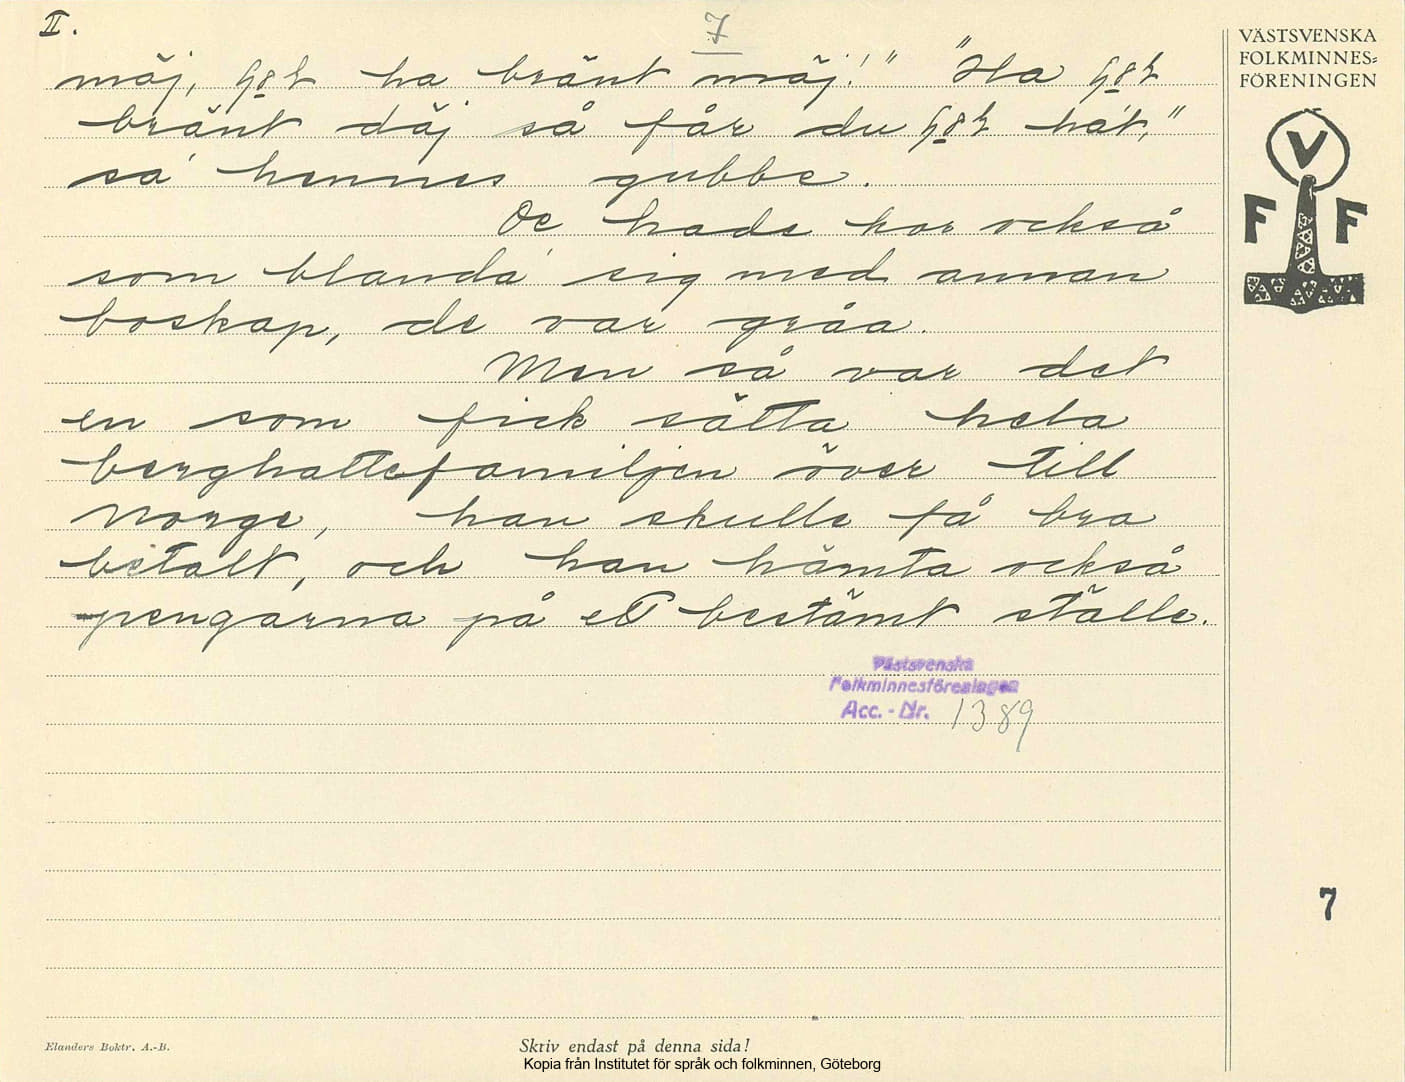 II.
7
VÄSTSVENSKA
FOLKMINNES=
FÖRENINGEN
V
F F
mäj, ha bränt mäj!" "Ha
bränt däj så får du hat,"
sa' hennes gubbe.
De hade kor också
som blanda' sig med annan
boskap, de var gråa.
Men så var det
en som fick sätta hela
berghattefamiljen över till
Norge, han skulle få bra
betalt, och han hämta också
pengarna på ett bestämt ställe.
Västsvenska
Folkminnesföreningen
Acc. - Nr. 1389
7
Elanders Boktr. A.-B.
Skriv endast på denna sida!
Kopia från Institutet för språk och folkminnen, Göteborg